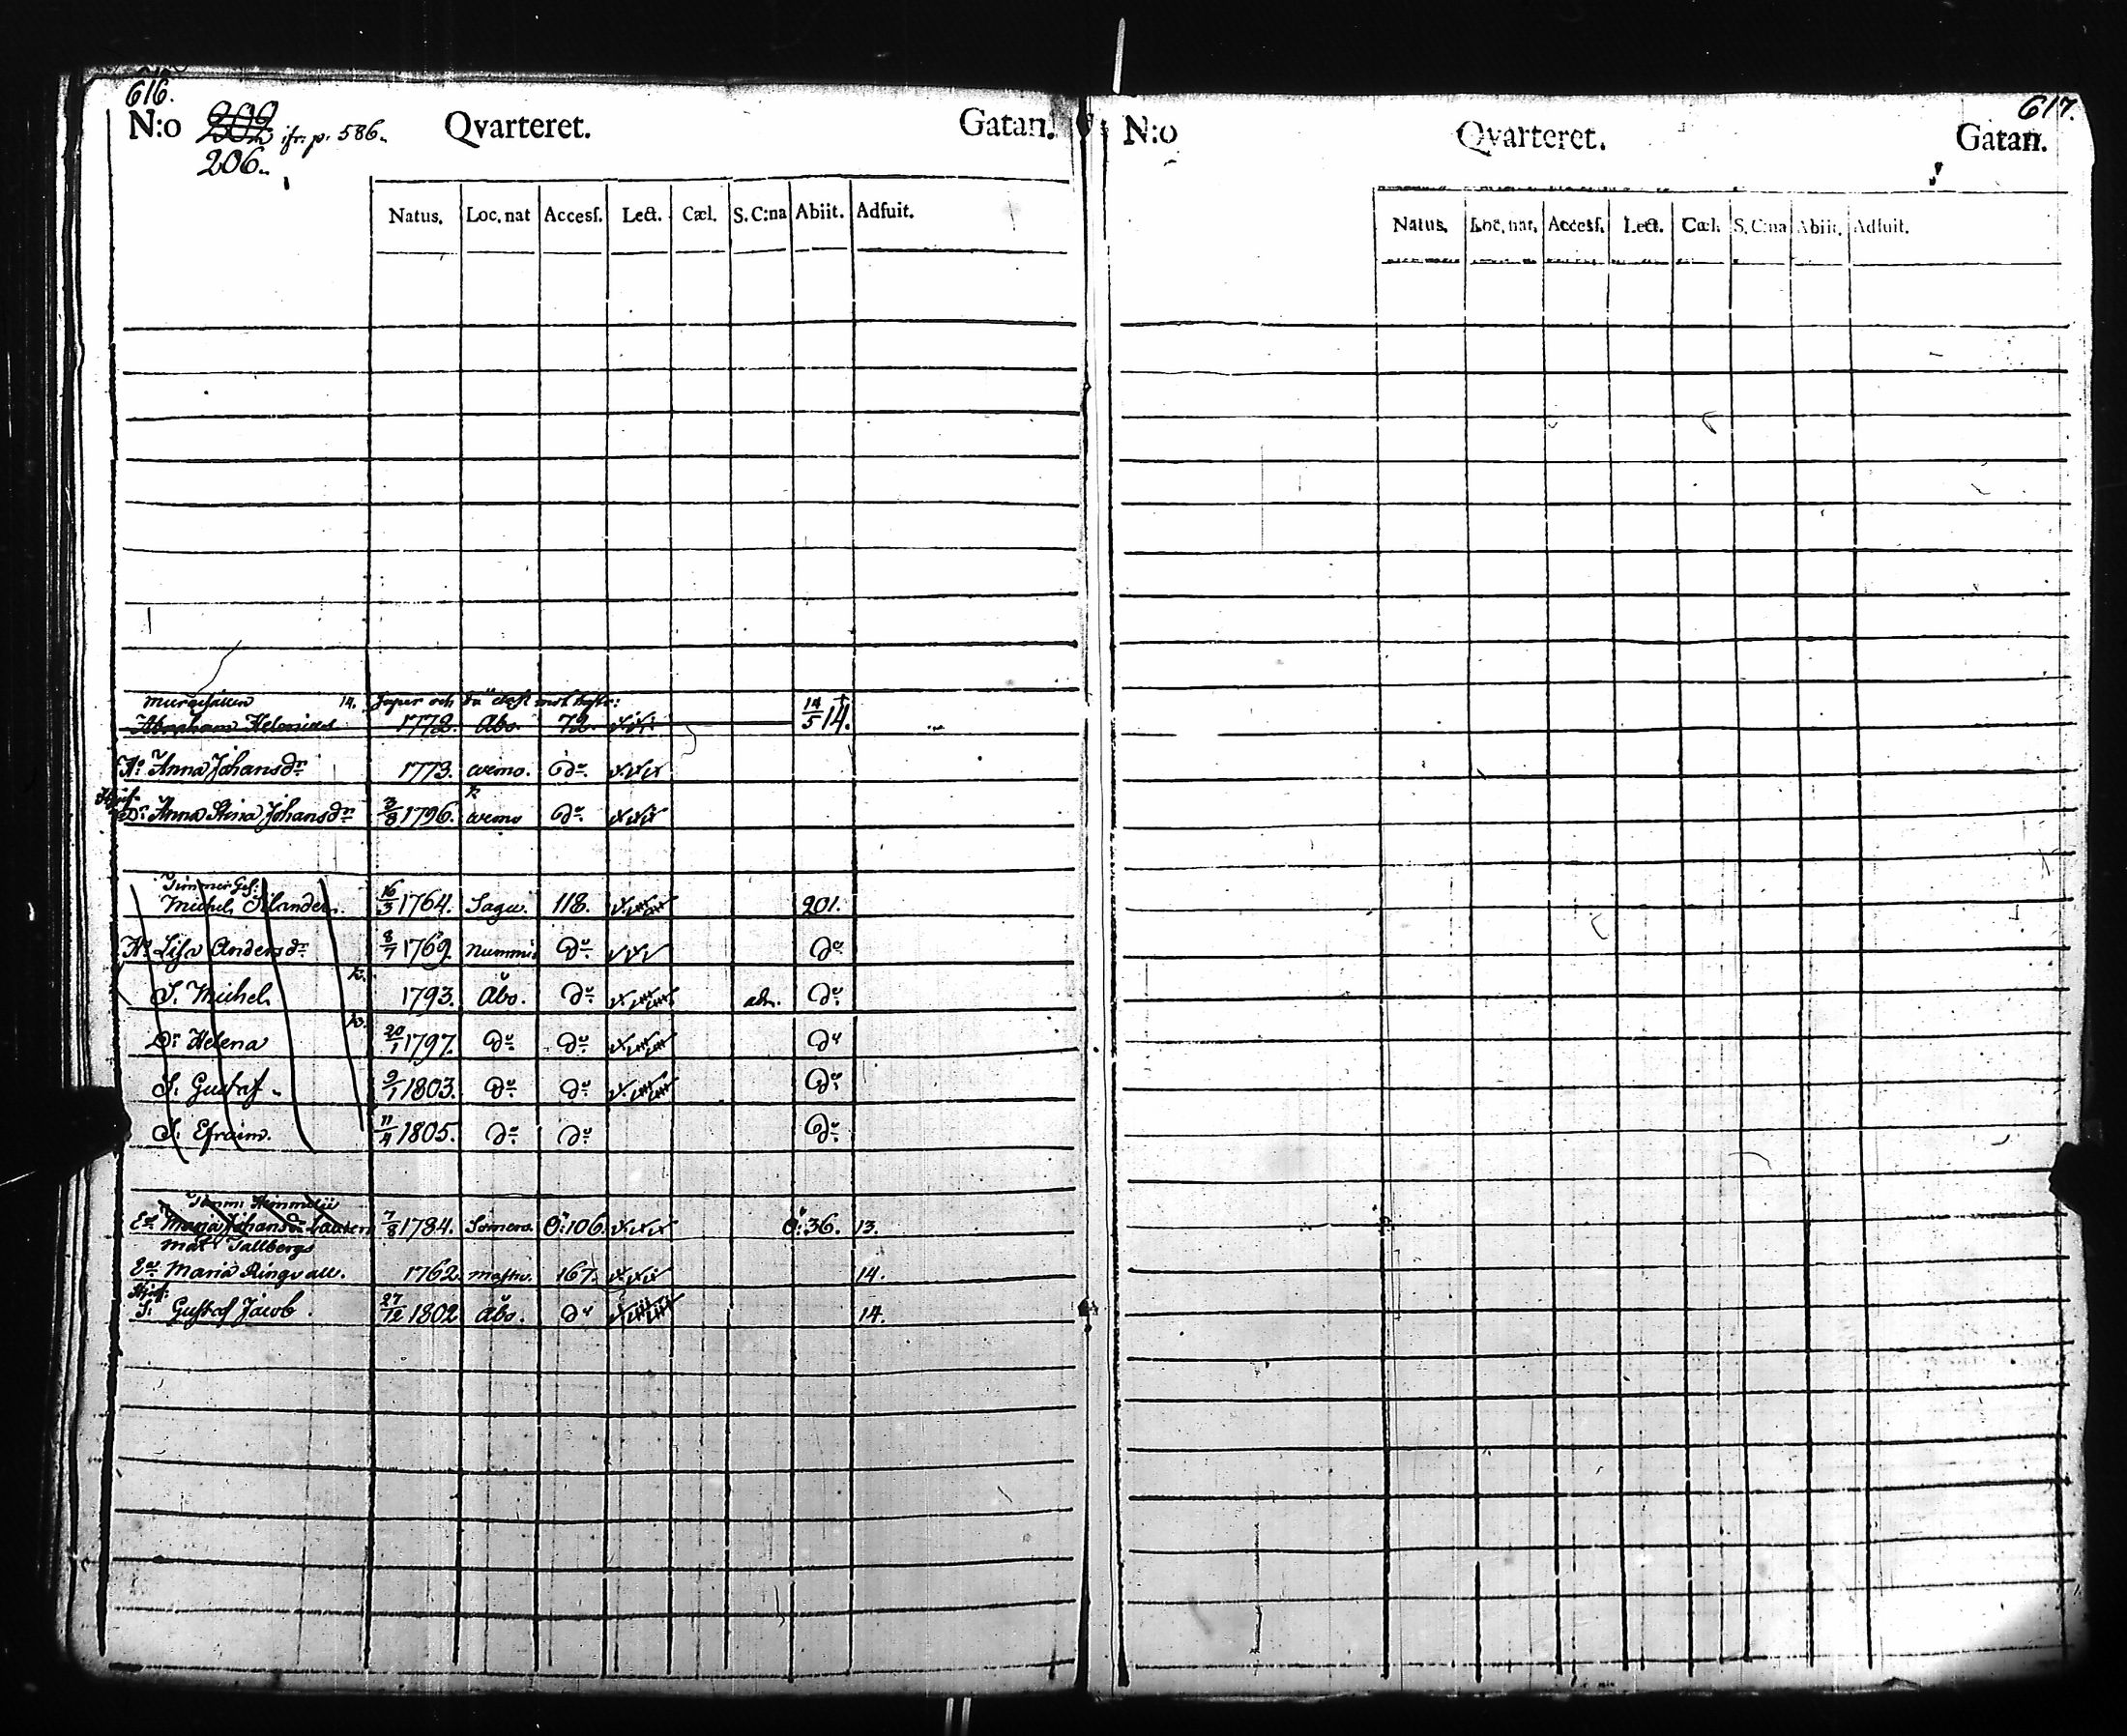 616.
N:o 202 jfr. p. 586. Qvarteret. Gatan.
206.
Natus. Loc. nat Accesſ. Lect. Cæl. S. C:na Abiit. Adfuit.
14.
Abraham Helenius 1772. Åbo. 72. 14/5 14. †
H: Anna Johansdr 1773. wemo. do
Dr Anna Stina Johansdr 1796. wemo do
Timmer Ges:
Michel Silander. 16/3 1764. Sagu. 118. 201.
H: Lisa Andersdr 8/7 1769. Nummis do do
k.
S. Michel 1793. Åbo. do adm. do
k.
Dr Helena 20/1 1797. do do do
S: Gustaf 9/1 1803. do do do
S: Efraim. 11/4 1805. do do do
Maria Johansdr 7/8 1784. Somero. Ö:106. Ö:36. 13.
Tallbergs
Ea Maria Ringvall. 1762. 167. 14.
S: Gustaf Jacob. 27/12 1802 Åbo. do 14.
617.
N:o Qvarteret. Gatan.
Natus. Loc. nat. Accesſ. Lect. Cæl. S. C:na Abiit. Adfuit.